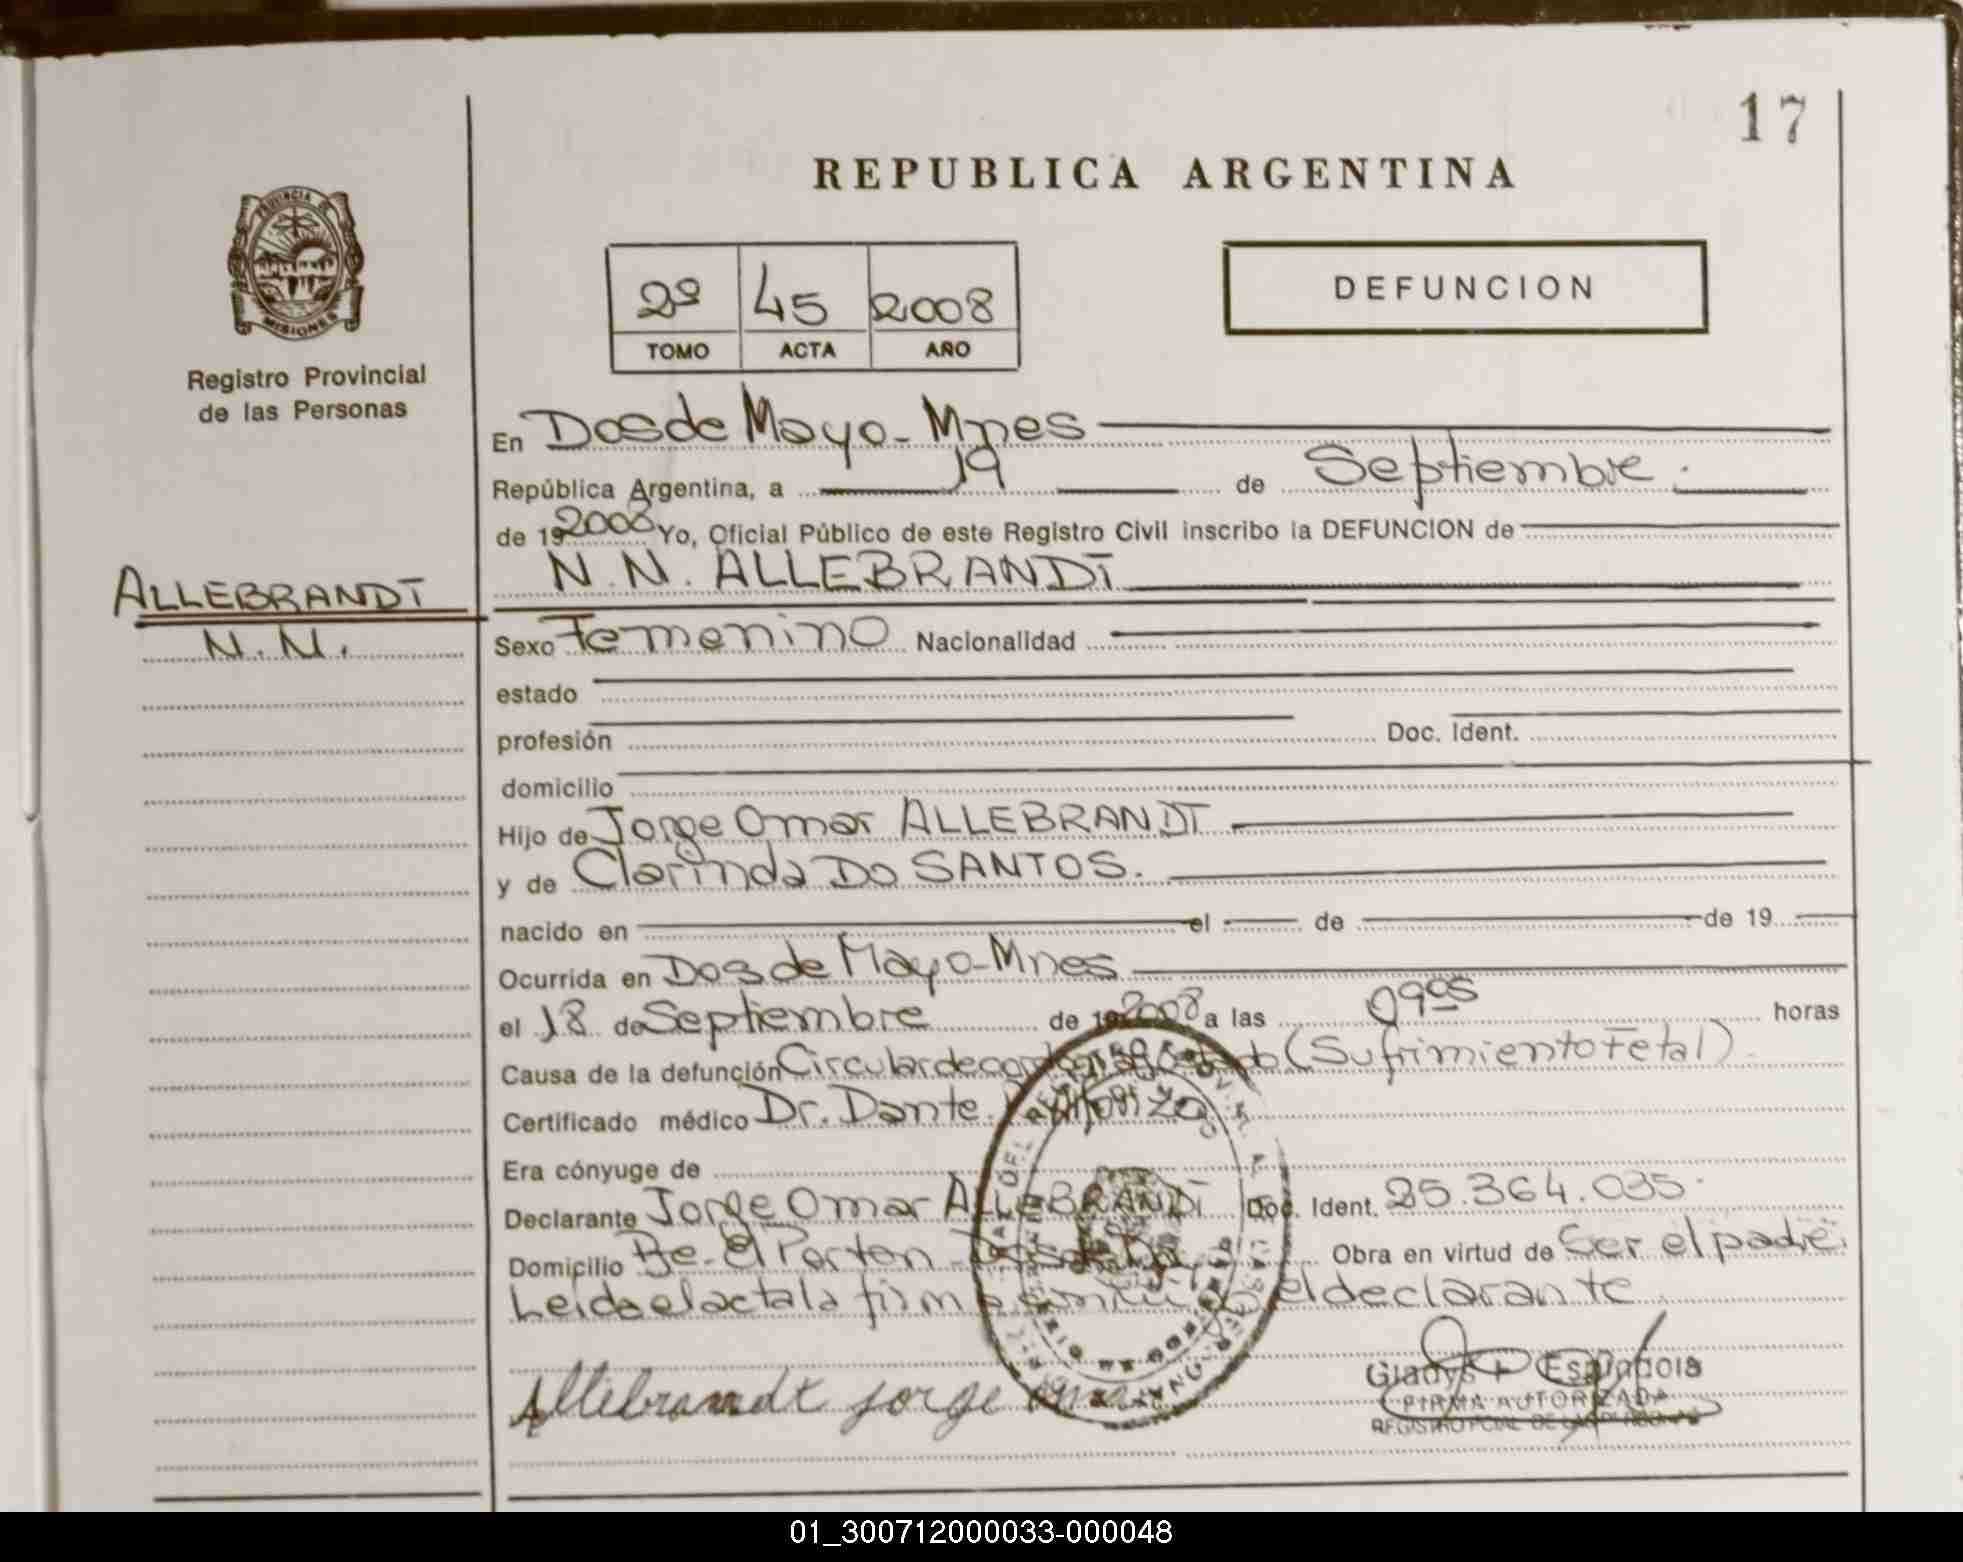 17
REPUBLICA ARGENTINA
PROVINCIA DE
MISIONES
Registro Provincial
de las Personas
2º 45 2008
TOMO ACTA AÑO
DEFUNCION
En Dos de Mayo - Mnes
República Argentina, a 19 de Septiembre
de 19 2008 Yo, Oficial Público de este Registro Civil inscribo la DEFUNCION de
N.N. ALLEBRANDT
ALLEBRANDT
N.N.
Sexo Femenino Nacionalidad
estado
profesión Doc. Ident.
domicilio
Hijo de Jorge Omar ALLEBRANDT
y de Clarinda DO SANTOS.
nacido en el de de 19
Ocurrida en Dos de Mayo - Mnes
el 18 de Septiembre de 19 2008 a las 09 05 horas
Causa de la defunción Circular de cordon (Sufrimiento Fetal)
Certificado médico Dr. Dante
Era cónyuge de
Declarante Jorge Omar ALLEBRANDT Doc. Ident. 25.364.035
Domicilio Be. El Porton Obra en virtud de Ser el padre
Leida el acta la firma el declarante
Allebrandt jorge
Gladys Espindola
FIRMA AUTORIZADA
01_300712000033-000048